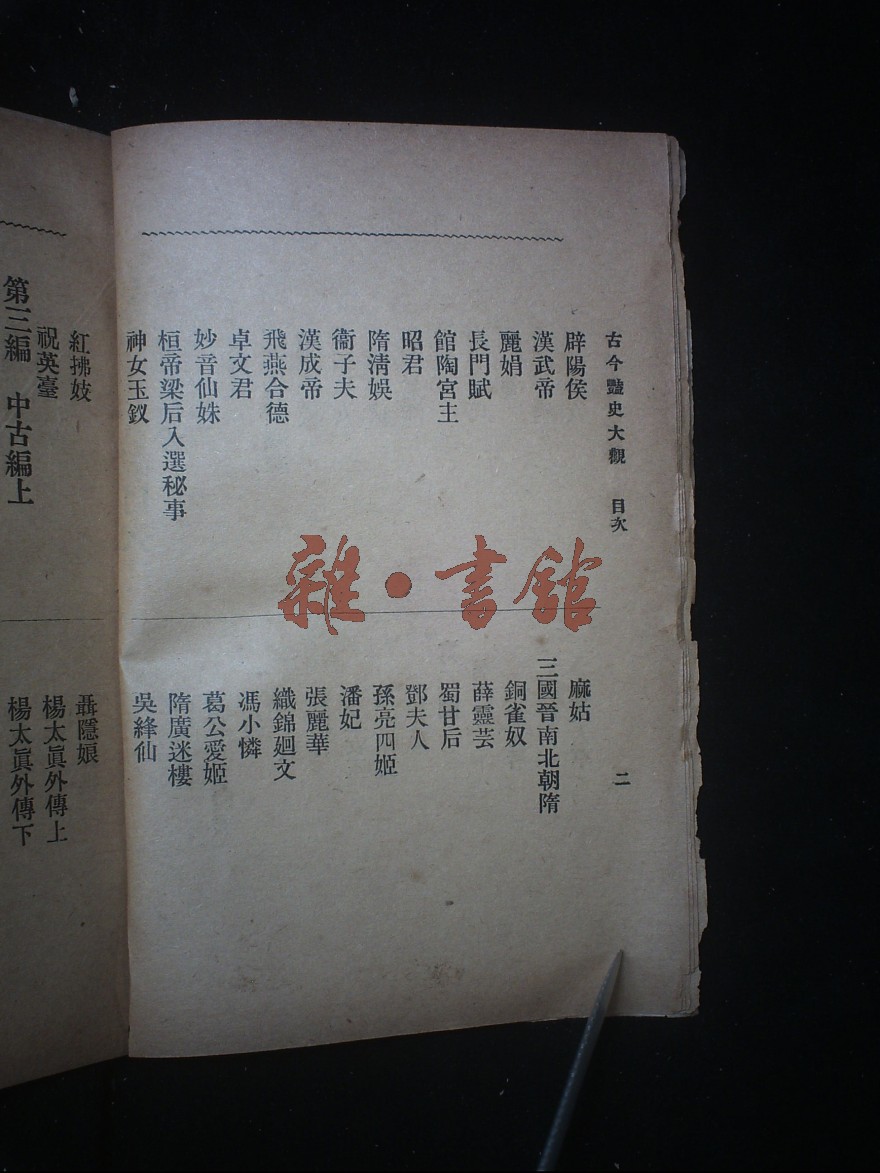 古今豔史大觀 目次 二
辟陽侯
漢武帝
麗娟
長門賦
館陶宮主
昭君
隋清娛
衞子夫
漢成帝
飛燕合德
卓文君
妙音仙姝
桓帝梁后入選秘事
神女玉釵
麻姑
三國晉南北朝隋
銅雀奴
薛靈芸
蜀甘后
鄧夫人
孫亮四姬
潘妃
張麗華
織錦廻文
馮小憐
葛公愛姬
隋廣迷樓
吳絳仙
紅拂妓
祝英臺
第三編 中古編上
聶隱娘
楊太眞外傳上
楊太眞外傳下
雜·書館